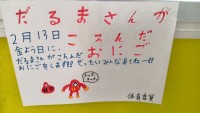 だるまさんが
ころんだ
おにご
2月13日
金よう日に、
だるまさんがころんだ
おにごをします!!ぜったいみんなきてねー!!
体育委員